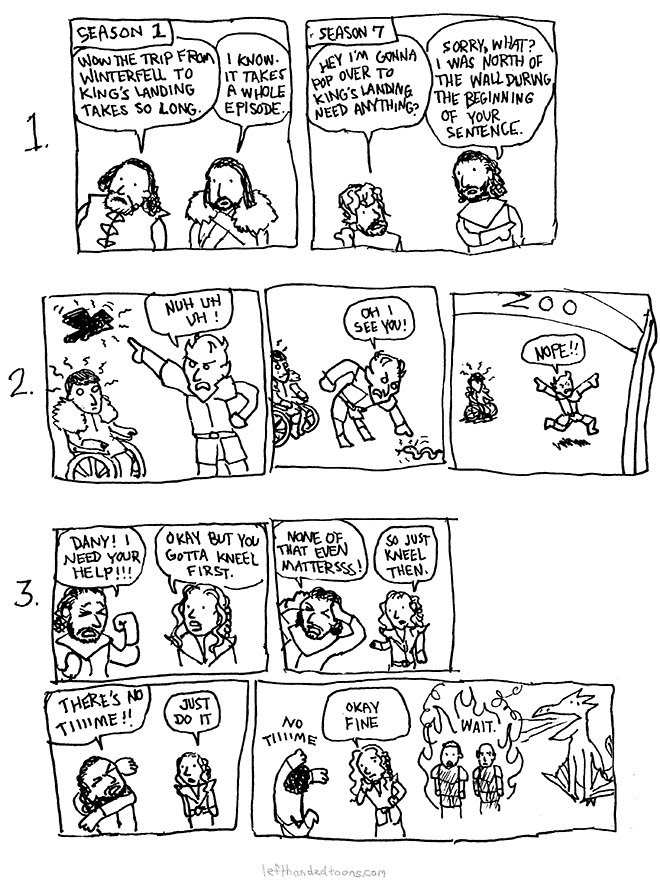 1.
SEASON 1
WOW THE TRIP FROM
WINTERFELL TO
KING'S LANDING
TAKES SO LONG.
I KNOW.
IT TAKES
A WHOLE
EPISODE.
SEASON 7
HEY I'M GONNA
POP OVER TO
KING'S LANDING
NEED ANYTHING?
SORRY, WHAT?
I WAS NORTH OF
THE WALL DURING
THE BEGINNING
OF YOUR
SENTENCE.
2.
NUH UH
UH!
OH I
SEE YOU!
ZOO
NOPE!!
3.
DANY! I
NEED YOUR
HELP!!!
OKAY BUT YOU
GOTTA KNEEL
FIRST.
NONE OF
THAT EVEN
MATTERSSS!
SO JUST
KNEEL
THEN.
THERE'S NO
TIIIIME!!
JUST
DO IT
NO
TIIIIME
OKAY
FINE
WAIT.
lefthandedtoons.com